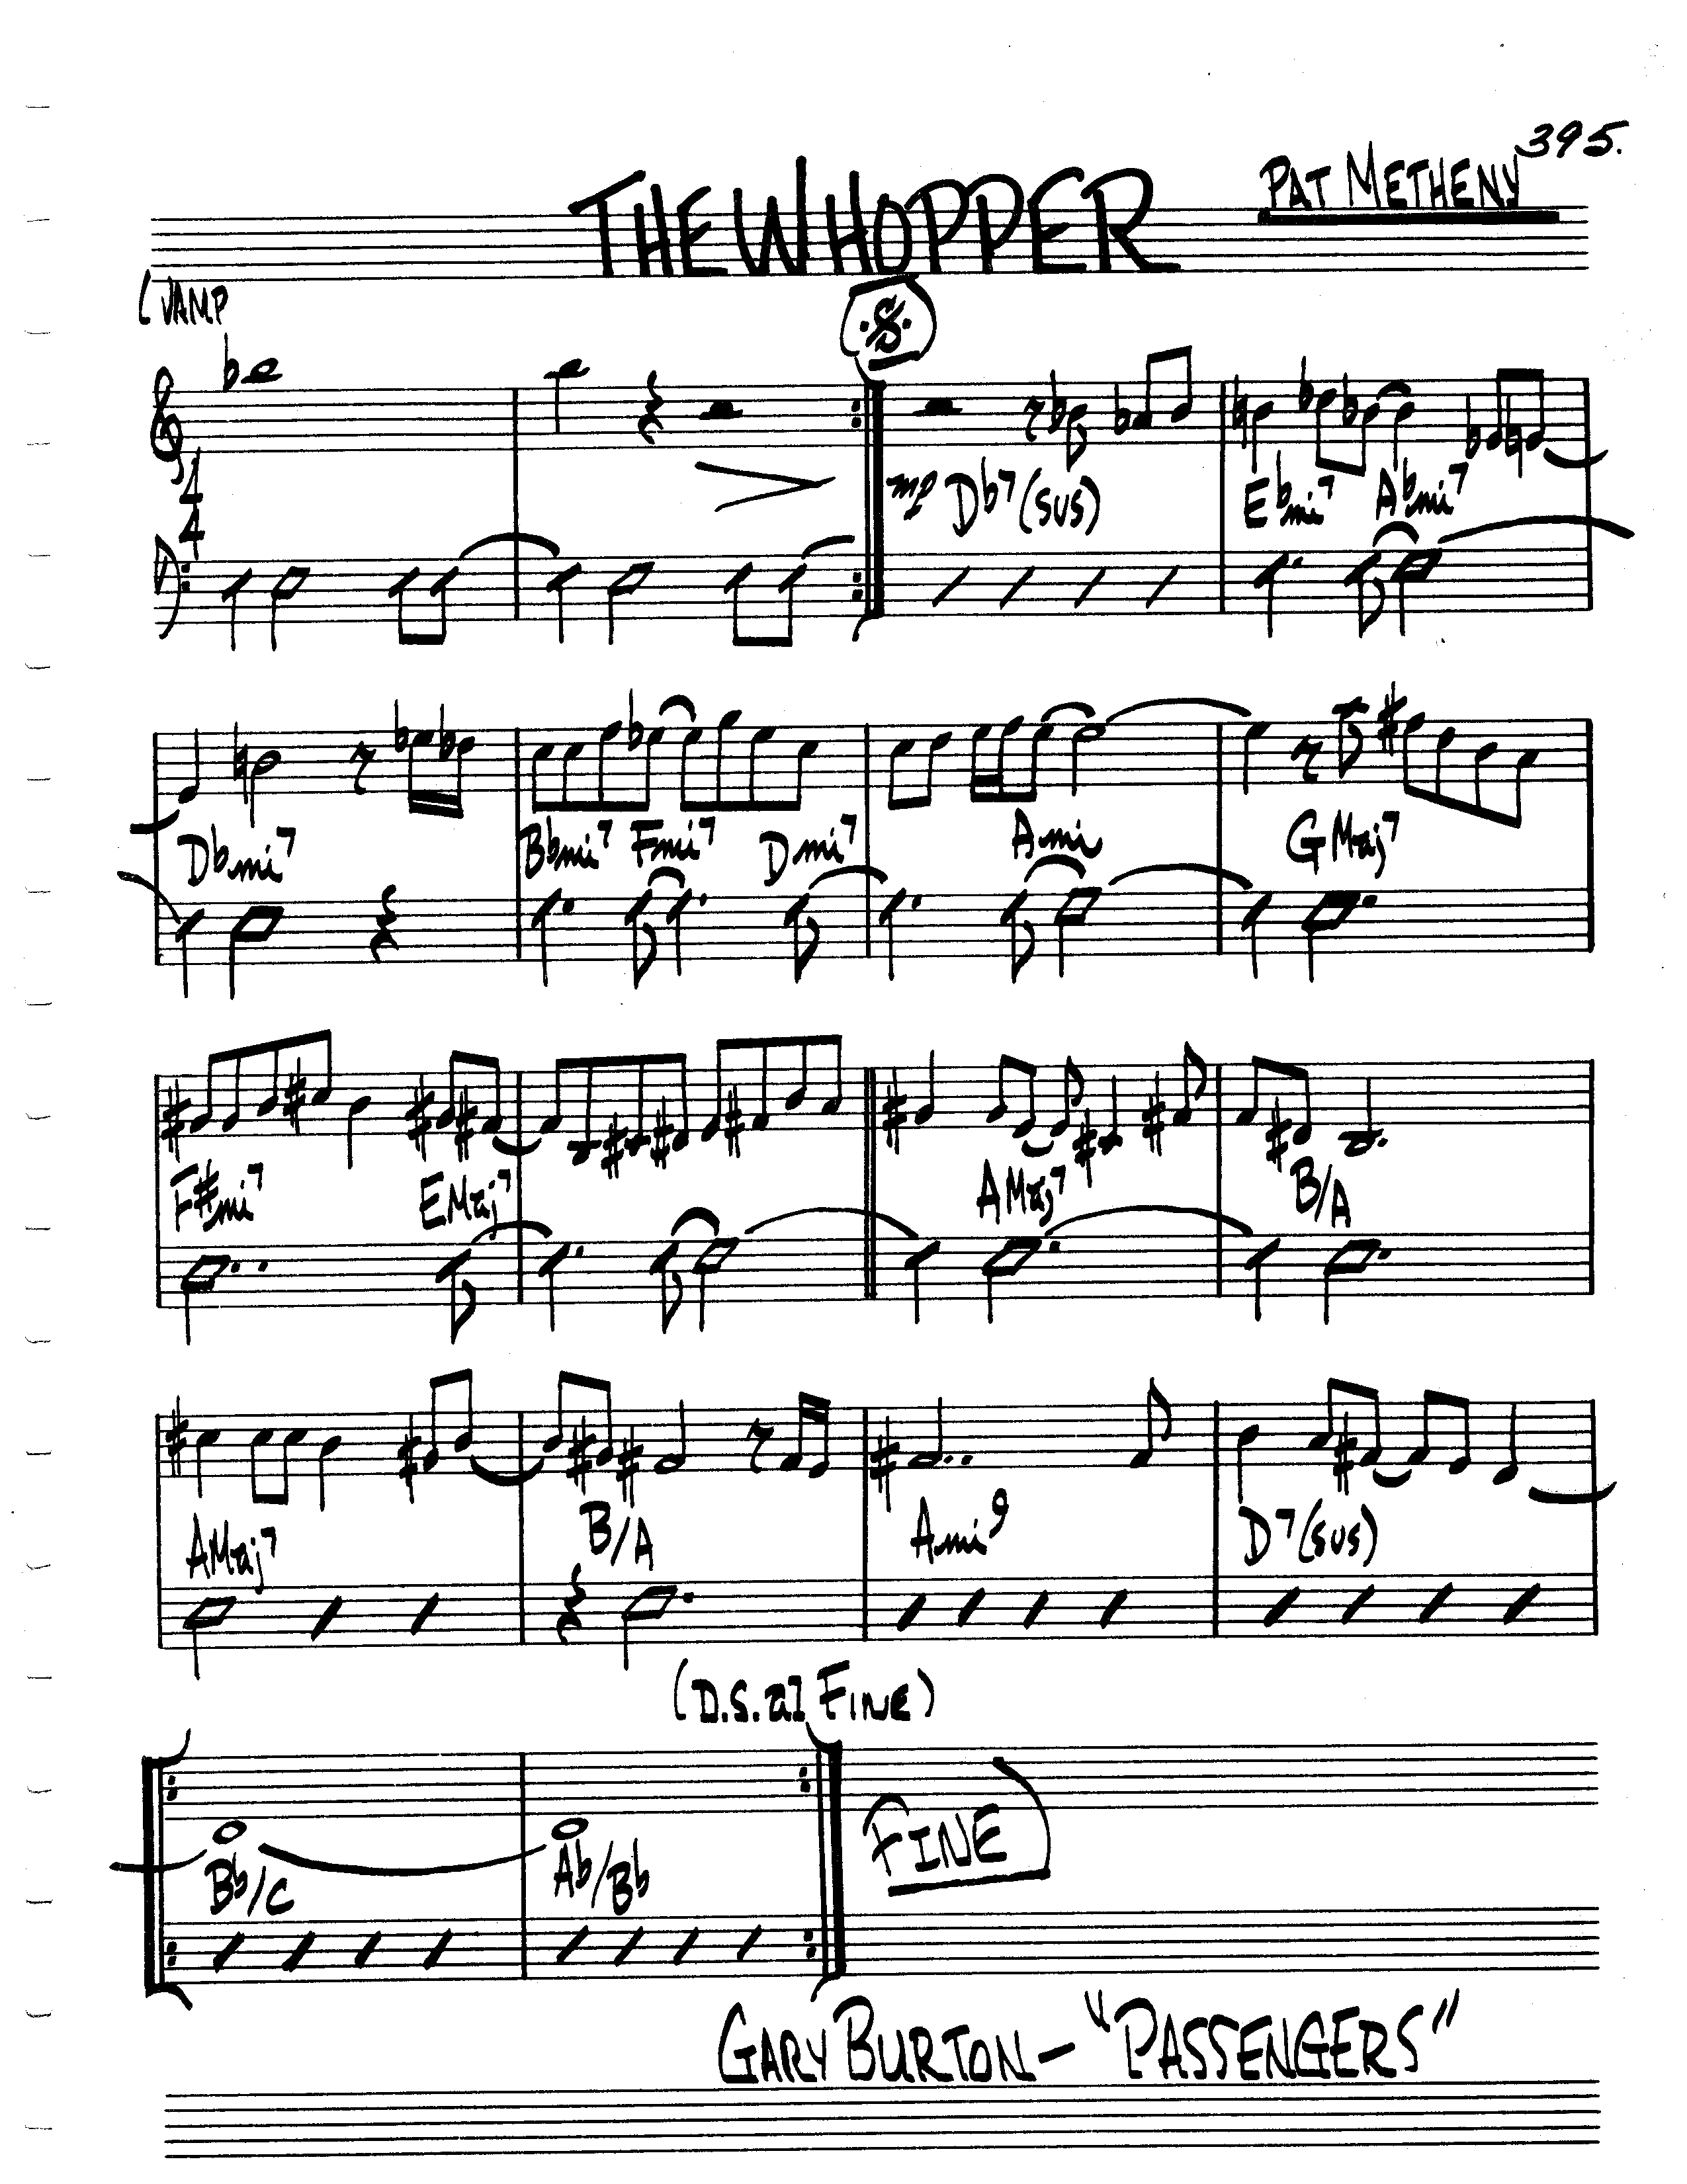 395.
THE WHOPPER
PAT METHENY
(VAMP
4
4
mp Db7(sus) Ebmi7 Abmi7
Dbmi7 Bbmi7 Fmi7 Dmi7 Ami GMaj7
F#mi7 EMaj7 AMaj7 B/A
AMaj7 B/A Ami9 D7(sus)
(D.S. al FINE)
Bb/C Ab/Bb FINE
GARY BURTON – "PASSENGERS"